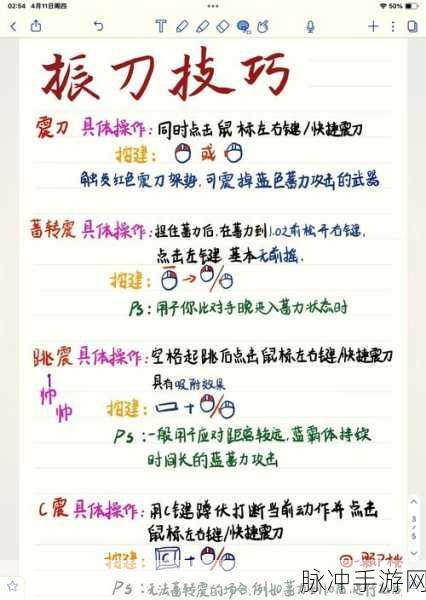 02:54 4月11日周四
50%
振刀技巧
震刀 具体操作：同时点击鼠标左右键/快捷震刀
按建： 或
触发红色震刀架势，可震掉蓝色蓄力攻击的武器
蓄转震 具体操作：捏住蓄力后，在蓄力到1.02前松开右键，
点击左键 基本无前摇.
按建：
PS：用于你比对手晚进入蓄力状态时
跳震 具体操作：空格起跳后点击鼠标左右键/快捷震刀
具有吸附效果
帅
帅
按建： +
PS：一般用于应对距离较远，蓝霸体持续
时间长的蓝蓄力攻击
C震 具体操作：用C键蹲伏打断当前动作并点击
鼠标左右键/快捷震刀
按建： C +
3/5
PS：无法蓄转震的场合，例如蓄力
脉冲手游网